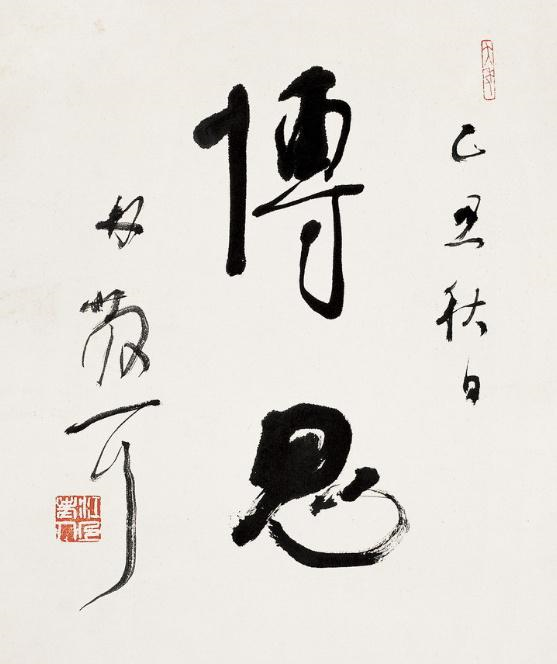 乙丑秋日
博思
林散耳